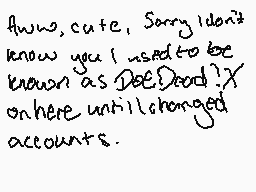 Aww, cute, Sorry I don't
know you I used to be
known as DOEDood!?X
on here untill changed
accounts.